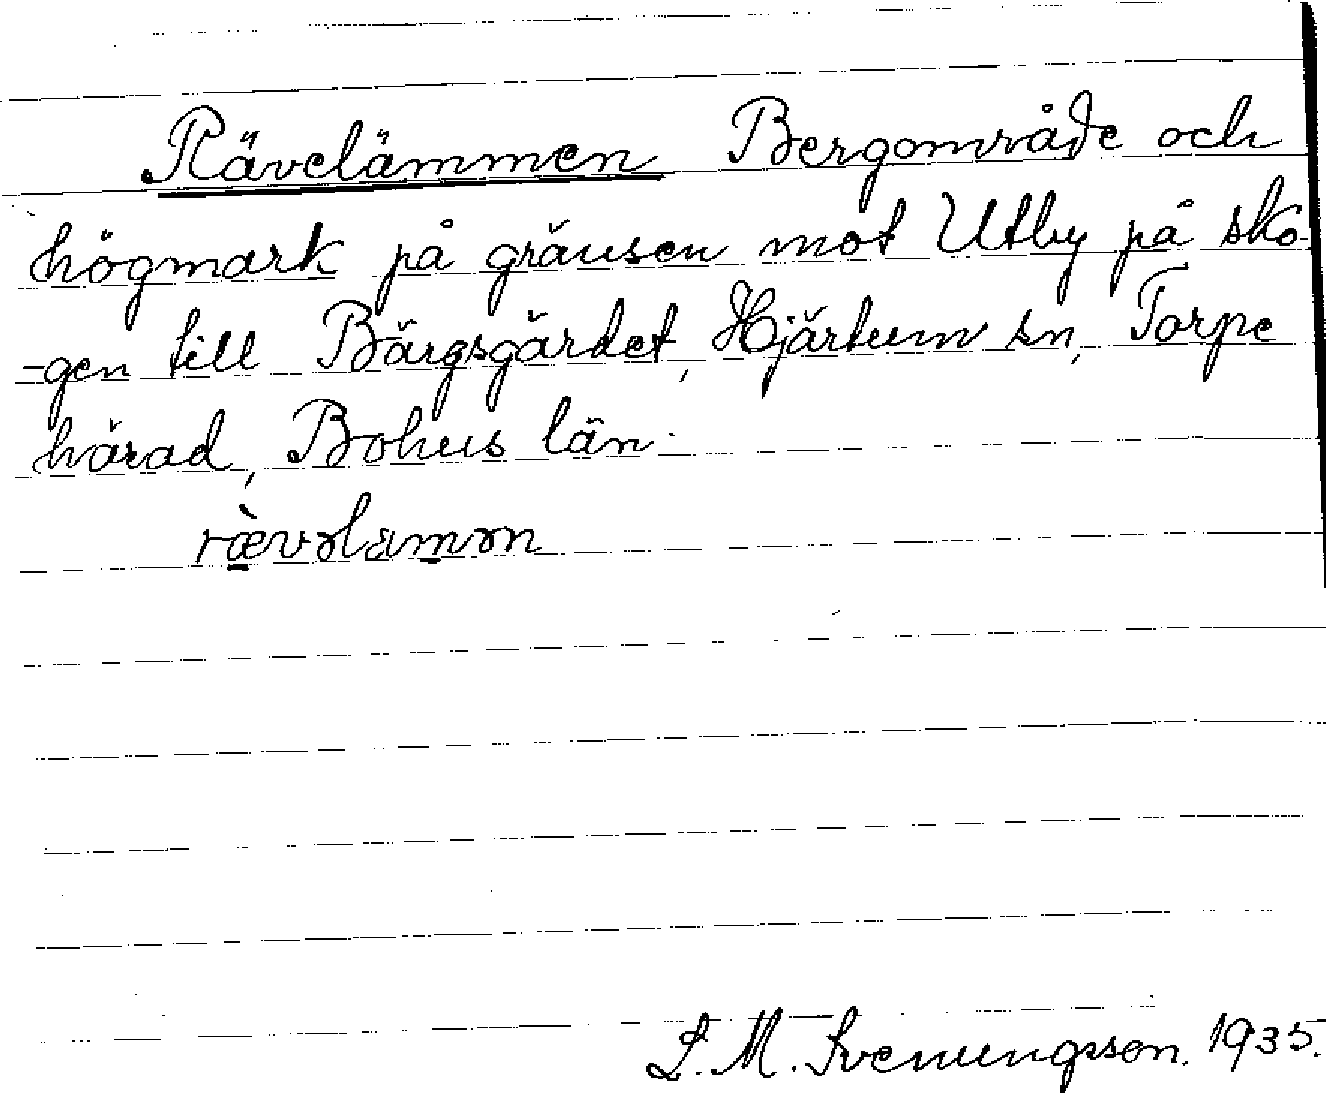 Rävelämmen Bergområde och
högmark på gränsen mot Utby på sko
-gen till Bärgsgärdet, Hjärtum sn, Torpe
härad, Bohus län.
rævəlæmən
S. M. Svenungsson. 1935.